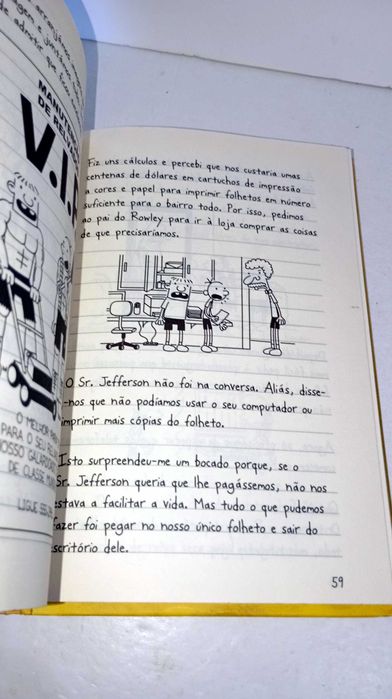 MANUTE
DE RE
V.I.
O MELHOR
PARA O SEU
NOSSO
DE CLASSE
LIGUE
Fiz uns cálculos e percebi que nos custaria umas
centenas de dólares em cartuchos de impressão
a cores e papel para imprimir folhetos em número
suficiente para o bairro todo. Por isso, pedimos
ao pai do Rowley para ir à loja comprar as coisas
de que precisaríamos.
O Sr. Jefferson não foi na conversa. Aliás, disse-
-nos que não podíamos usar o seu computador ou
imprimir mais cópias do folheto.
Isto surpreendeu-me um bocado porque, se o
Sr. Jefferson queria que lhe pagássemos, não nos
estava a facilitar a vida. Mas tudo o que pudemos
fazer foi pegar no nosso único folheto e sair do
escritório dele.
59